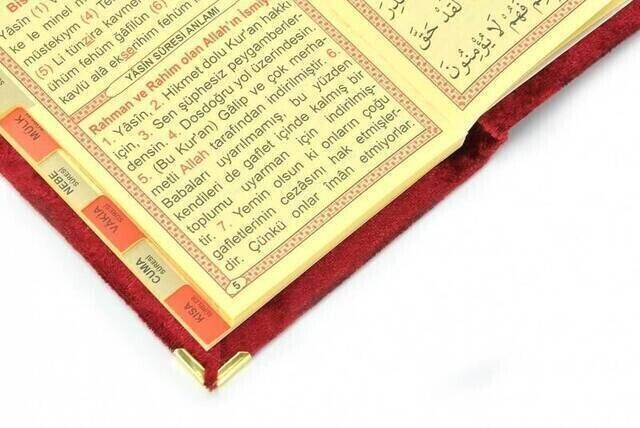 Yâsîn (1) V
ke le minel n
müstekıym (4) Ten
(5) Li tünzira kavmen
ühüm fehüm gâfilûn (6)
kavlü alâ ekserihim fehüm
YASİN SÛRESİ ANLAMI
Rahman ve Rahim olan Allah'ın İsmiy
1. Yâsîn, 2. Hikmet dolu Kur'an hakkı
için, 3. Sen şüphesiz peygamberler-
densin. 4. Dosdoğru yol üzerindesin.
5. (Bu Kur'an) Gâlip ve çok merha-
metli Allah tarafından indirilmiştir. 6.
Babaları uyarılmamış, bu yüzden
kendileri de gaflet içinde kalmış bir
toplumu uyarman için indirilmiş-
tir. 7. Yemin olsun ki onların çoğu
gafletlerinin cezasını hak etmişler-
dir. Çünkü onlar îmân etmiyorlar.
5
MÜLK
NEBE
SÛRESİ
VÂKIA
SÛRESİ
CUMA
SÛRESİ
KISA
لَقَدْ حَقَّ
فَهُمْ لَا يُؤْمِنُونَ